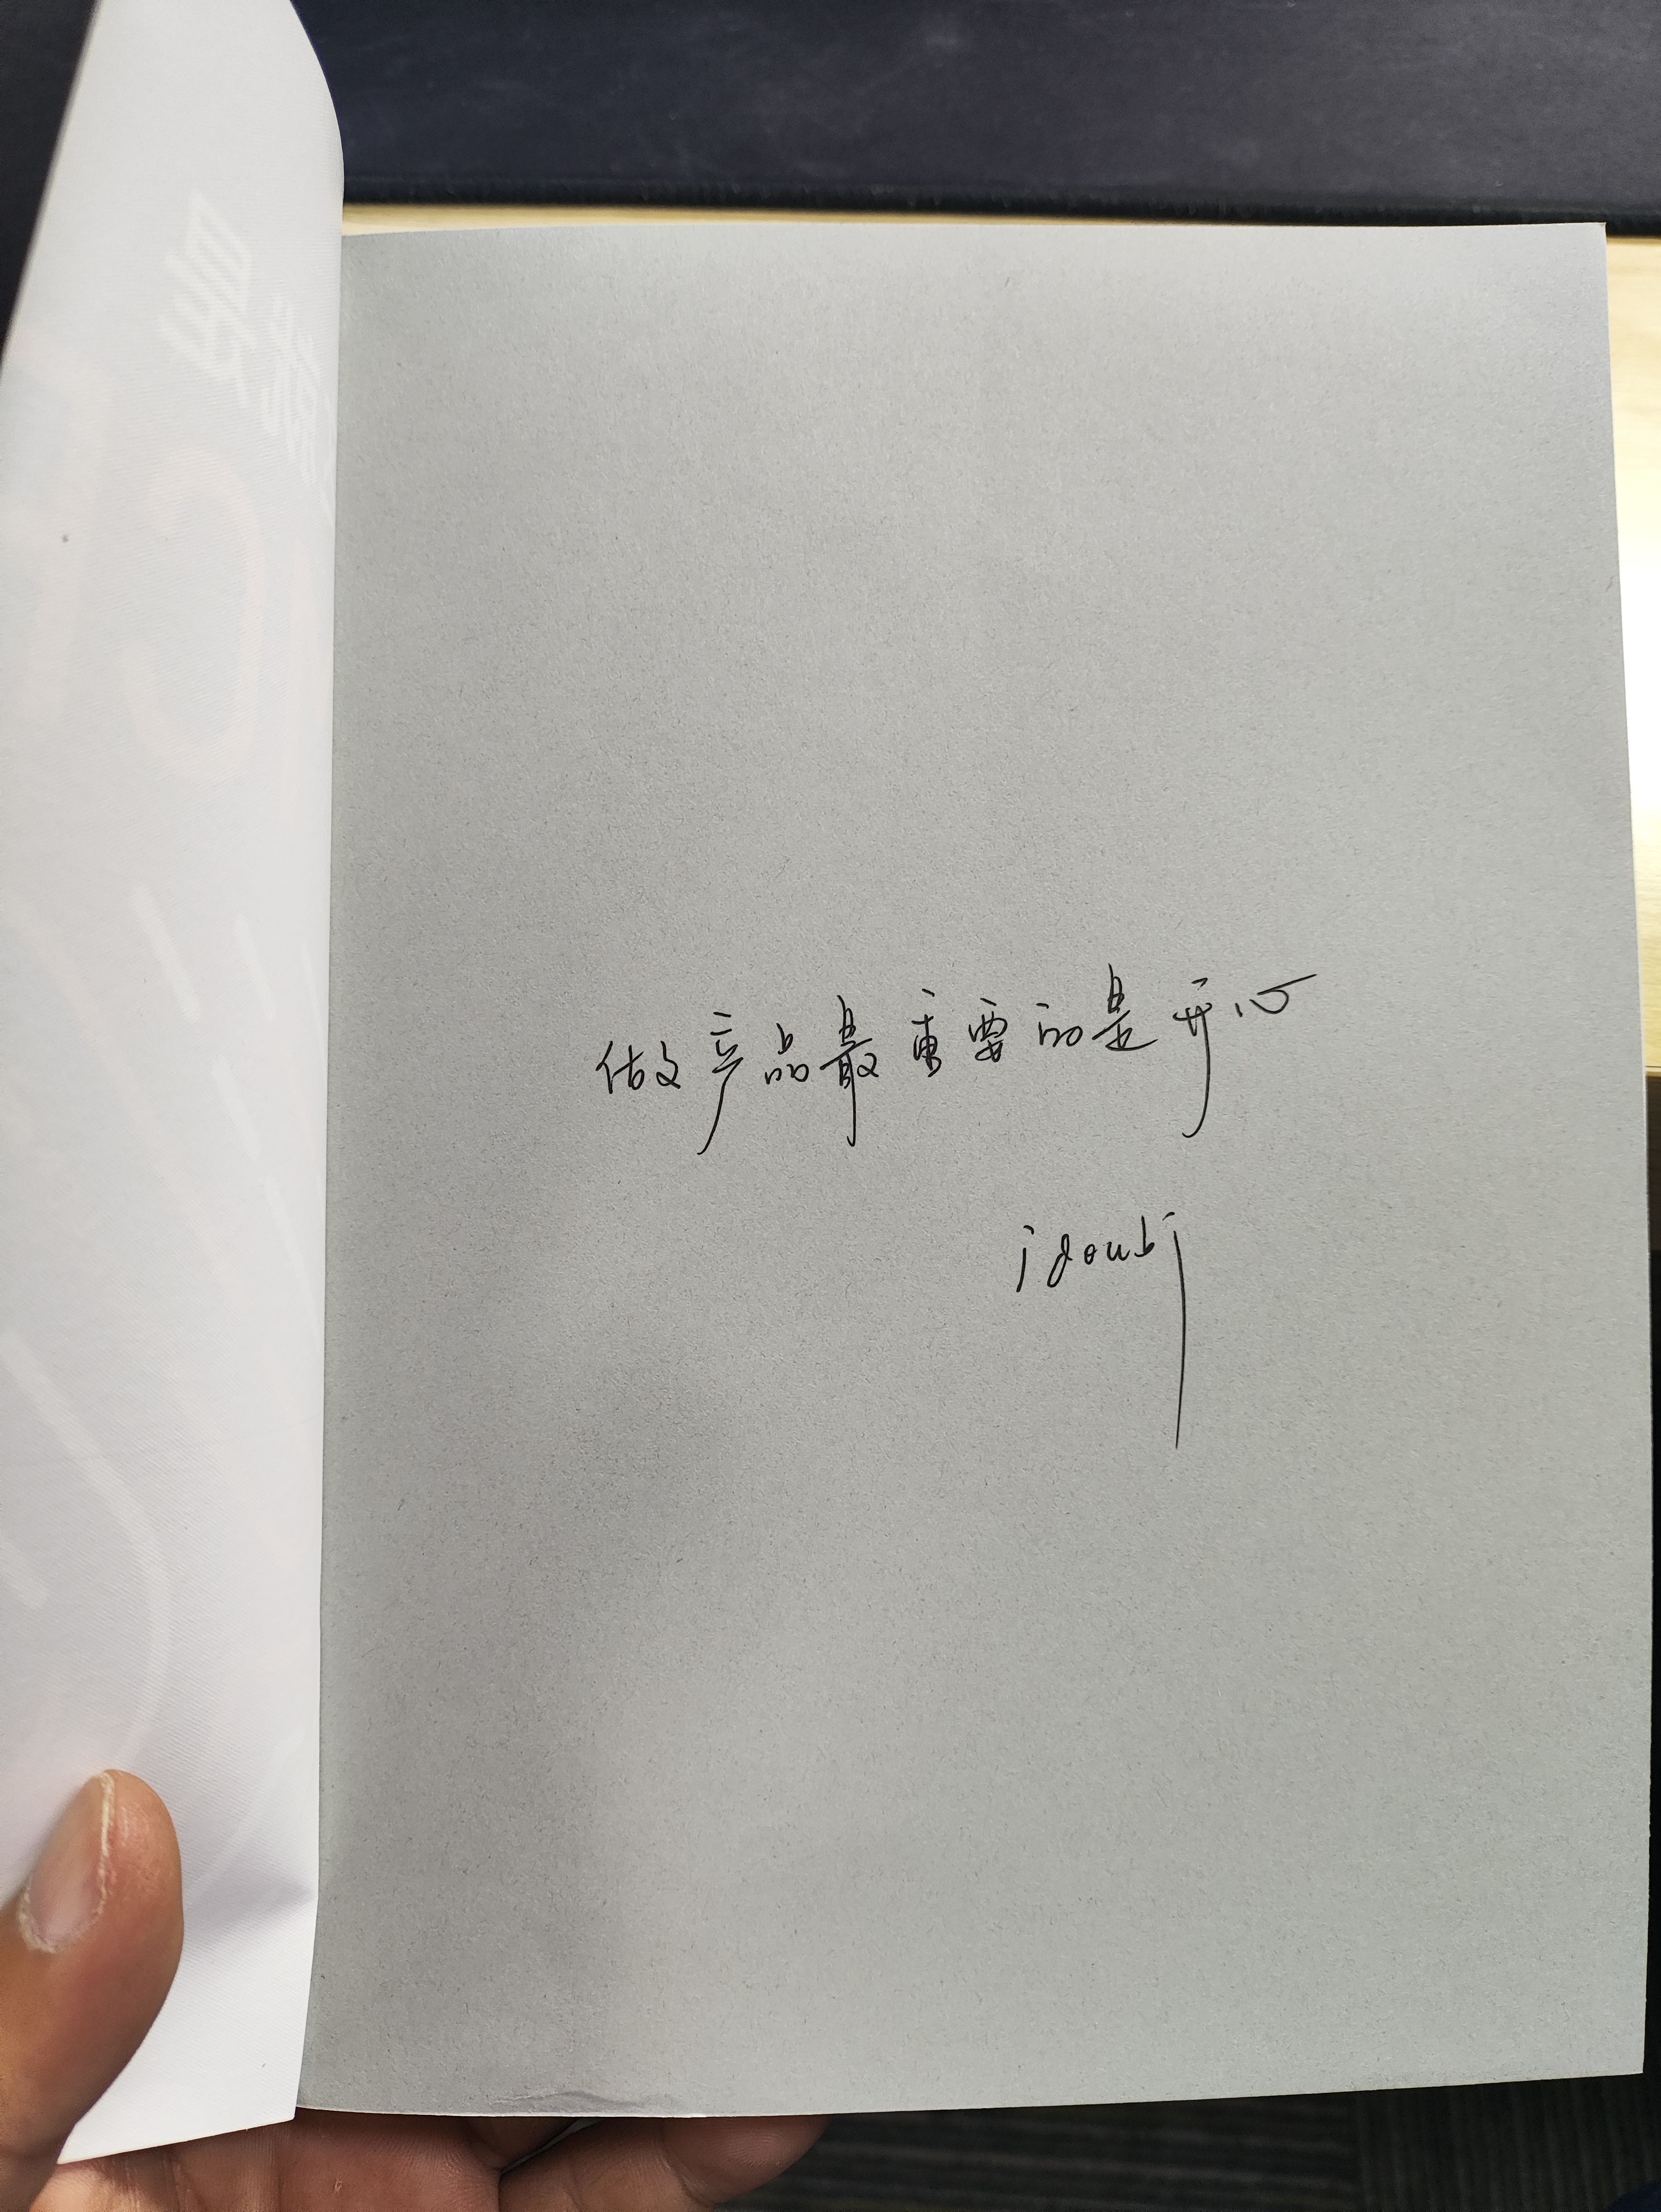 做产品最重要的是开心
idoubj